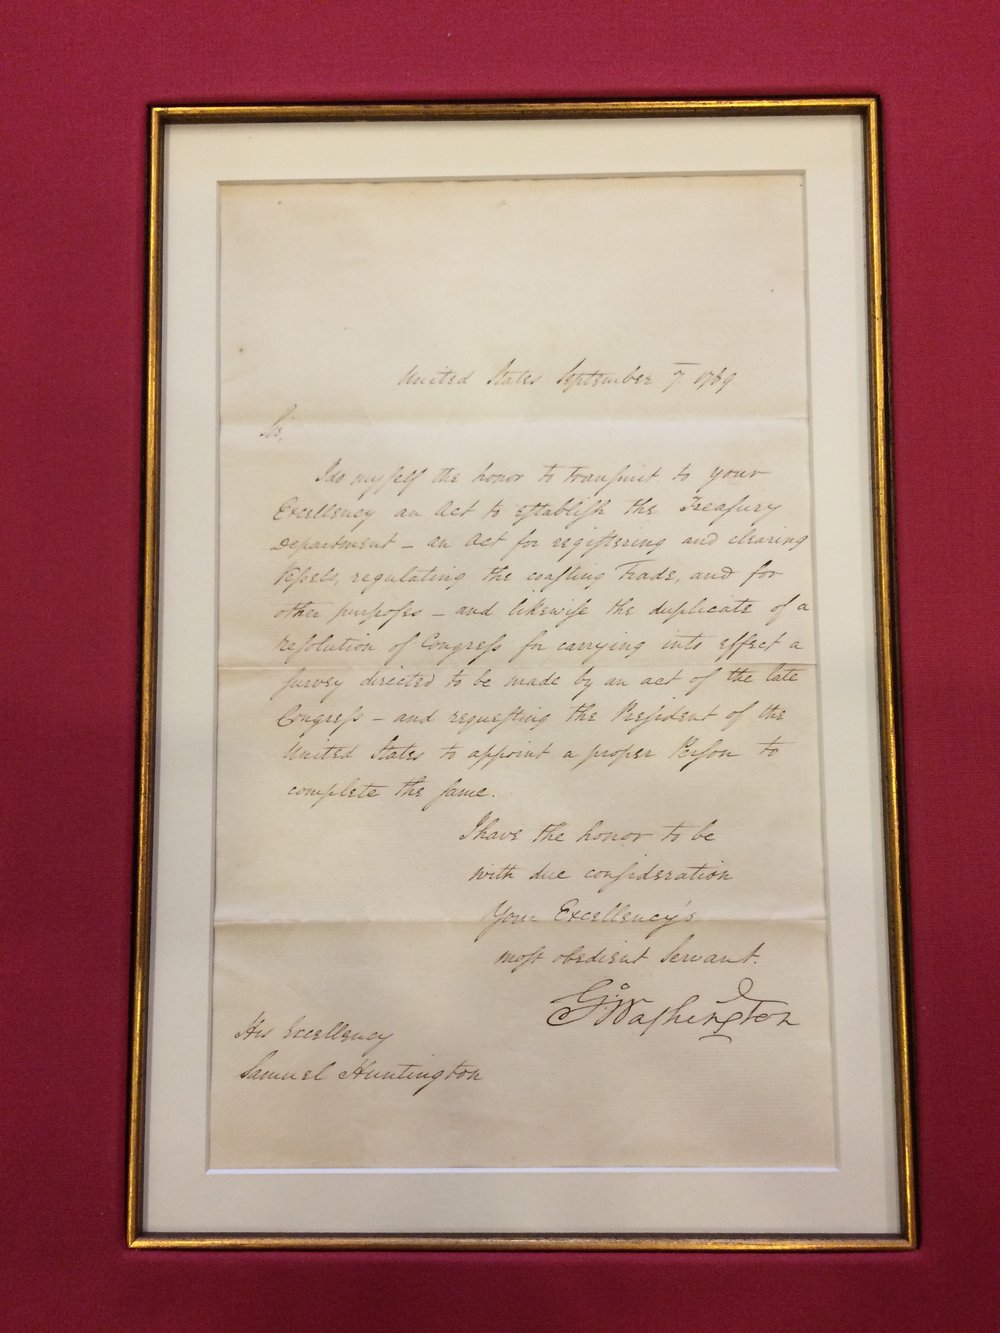 United States September 7. 1789.
Sir,
I do myself the honor to tranſmit to your
Excellency an Act to eſtabliſh the Treaſury
Department — an Act for regiſtering and clearing
Veſsels, regulating the coaſting Trade, and for
other purpoſes — and likewiſe the duplicate of a
Reſolution of Congreſs for carrying into effect a
ſurvey directed to be made by an act of the late
Congreſs — and requeſting the Preſident of the
United States to appoint a proper Perſon to
complete the ſame.
I have the honor to be
with due conſideration
Your Excellency's
moſt obedient Servant.
Go: Waſhington
His Excellency
Samuel Huntington